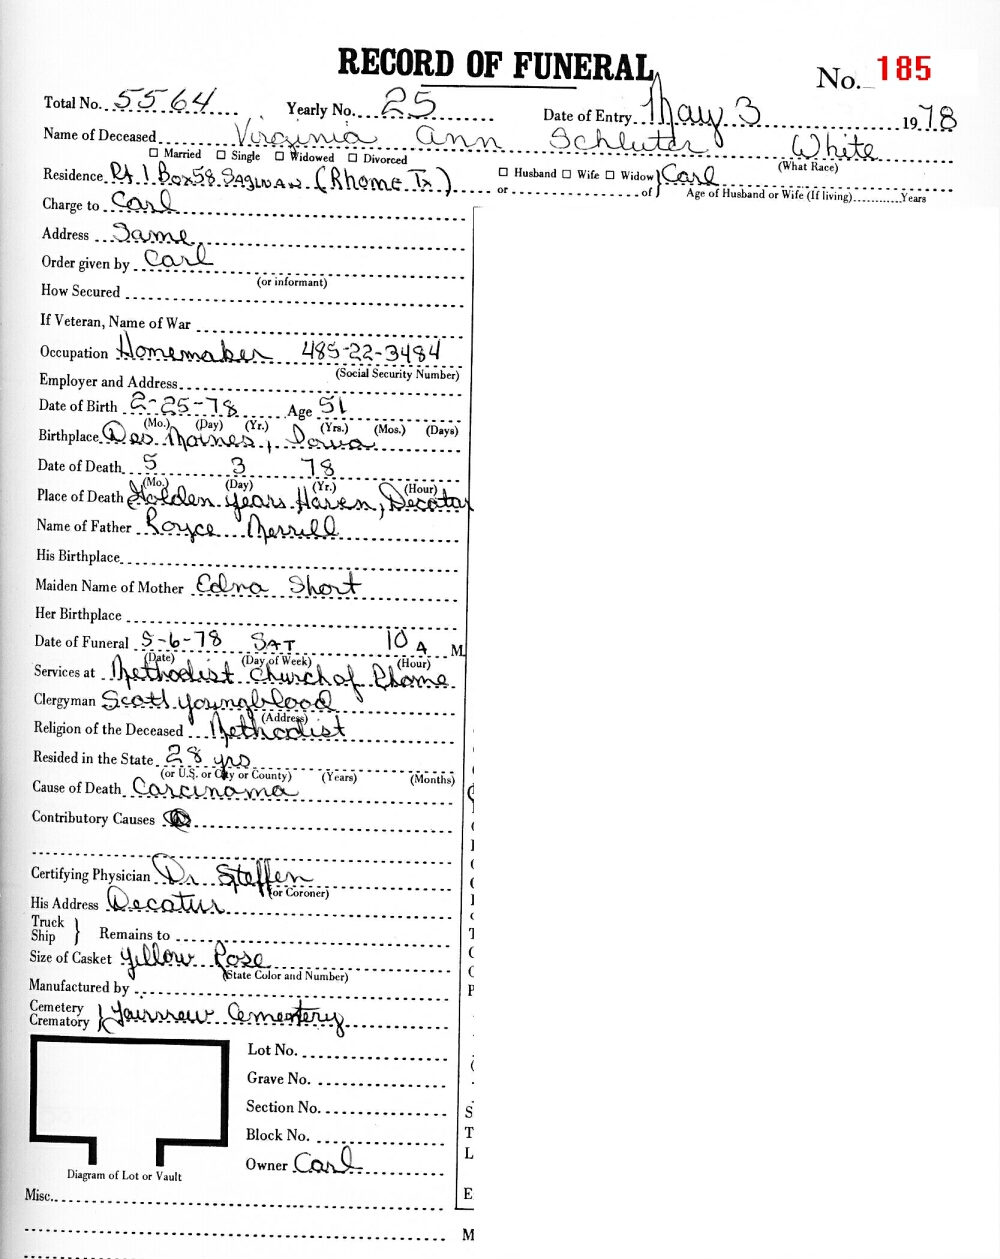 RECORD OF FUNERAL
No. 185
Total No. 5564 Yearly No. 25 Date of Entry May 3 1978
Name of Deceased Virginia Ann Schluter White
☐ Married ☐ Single ☐ Widowed ☐ Divorced (What Race)
Residence Rt. 1 Box 58 Saginaw (Rhome Tx) ☐ Husband ☐ Wife ☐ Widow } Carl
or of Age of Husband or Wife (If living) Years
Charge to Carl
Address Same
Order given by Carl
(or informant)
How Secured
If Veteran, Name of War
Occupation Homemaker 485-22-3484
(Social Security Number)
Employer and Address
Date of Birth 2-25-78 Age 51
(Mo.) (Day) (Yr.) (Yrs.) (Mos.) (Days)
Birthplace Des Moines, Iowa
Date of Death 5 3 78
(Mo.) (Day) (Yr.) (Hour)
Place of Death Golden Years Haven, Decatur
Name of Father Royce Merrill
His Birthplace
Maiden Name of Mother Edna Short
Her Birthplace
Date of Funeral 5-6-78 SAT 10 A M.
(Date) (Day of Week) (Hour)
Services at Methodist Church of Rhome
Clergyman Scott Youngblood
(Address)
Religion of the Deceased Methodist
Resided in the State 28 yrs
(or U.S. or City or County) (Years) (Months)
Cause of Death Carcinoma
Contributory Causes
Certifying Physician Dr Steffen
(or Coroner)
His Address Decatur
Truck
Ship } Remains to
Size of Casket Yellow Rose
(State Color and Number)
Manufactured by
Cemetery
Crematory } Fairview Cemetery
Lot No.
Grave No.
Section No.
Block No.
Owner Carl
Diagram of Lot or Vault
Misc.